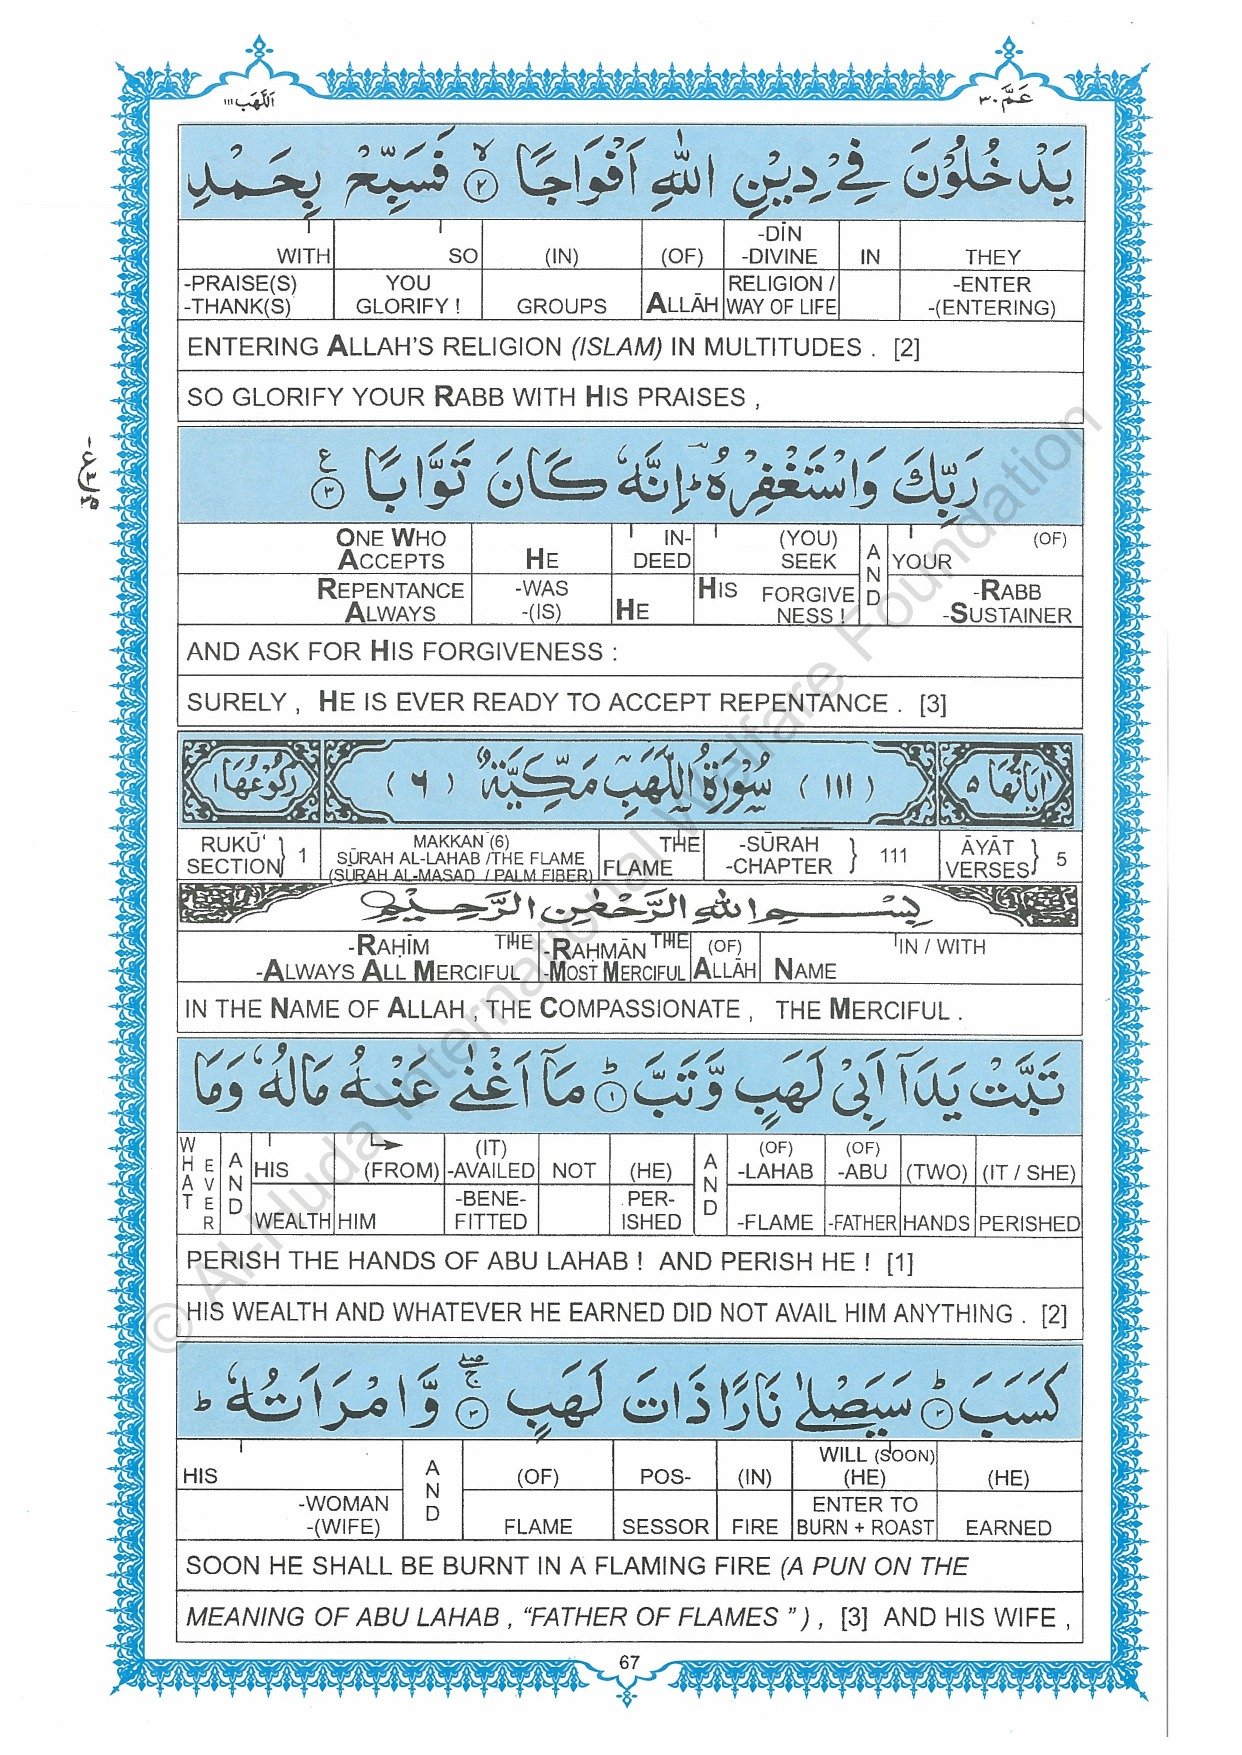 اَللَّهَب ١١١
عَمَّ ٣٠
يَدْخُلُوْنَ فِيْ دِيْنِ اللّٰهِ اَفْوَاجًا ۙ﴿٢﴾ فَسَبِّحْ بِحَمْدِ
WITH SO (IN) (OF) -DĪN -DIVINE IN THEY
-PRAISE(S) -THANK(S) YOU GLORIFY ! GROUPS ALLĀH RELIGION / WAY OF LIFE -ENTER -(ENTERING)
ENTERING ALLAH'S RELIGION (ISLAM) IN MULTITUDES . [2]
SO GLORIFY YOUR RABB WITH HIS PRAISES ,
رَبِّكَ وَاسْتَغْفِرْهُ ؕ اِنَّهٗ كَانَ تَوَّابًا ﴿٣﴾ ع
ONE WHO ACCEPTS HE IN- DEED (YOU) SEEK AND YOUR (OF)
REPENTANCE ALWAYS -WAS -(IS) HE HIS FORGIVE NESS ! -RABB -SUSTAINER
AND ASK FOR HIS FORGIVENESS :
SURELY , HE IS EVER READY TO ACCEPT REPENTANCE . [3]
اٰيَاتُهَا ٥ (١١١) سُوْرَةُ اللَّهَبِ مَكِّيَّةٌ (٦) رُكُوْعُهَا ١
RUKŪ‘ SECTION } 1 MAKKAN (6) SŪRAH AL-LAHAB /THE FLAME (SŪRAH AL-MASAD / PALM FIBER) THE FLAME -SŪRAH -CHAPTER } 111 ĀYĀT VERSES } 5
بِسْمِ اللّٰهِ الرَّحْمٰنِ الرَّحِيْمِ
-RAḤĪM THE -RAḤMĀN THE (OF) IN / WITH
-ALWAYS ALL MERCIFUL -MOST MERCIFUL ALLĀH NAME
IN THE NAME OF ALLAH , THE COMPASSIONATE , THE MERCIFUL .
تَبَّتْ يَدَآ اَبِيْ لَهَبٍ وَّتَبَّ ؕ﴿١﴾ مَآ اَغْنٰى عَنْهُ مَالُهٗ وَمَا
WHAT EVER AND HIS (FROM) (IT) -AVAILED NOT (HE) AND (OF) -LAHAB (OF) -ABU (TWO) (IT / SHE)
WEALTH HIM -BENE- FITTED PER- ISHED -FLAME -FATHER HANDS PERISHED
PERISH THE HANDS OF ABU LAHAB ! AND PERISH HE ! [1]
HIS WEALTH AND WHATEVER HE EARNED DID NOT AVAIL HIM ANYTHING . [2]
كَسَبَ ؕ﴿٢﴾ سَيَصْلٰى نَارًا ذَاتَ لَهَبٍ ۚۖ﴿٣﴾ وَّامْرَاَتُهٗ ؕ
HIS AND (OF) POS- (IN) WILL (SOON) (HE) (HE)
-WOMAN -(WIFE) FLAME SESSOR FIRE ENTER TO BURN + ROAST EARNED
SOON HE SHALL BE BURNT IN A FLAMING FIRE (A PUN ON THE
MEANING OF ABU LAHAB , “FATHER OF FLAMES ” ) , [3] AND HIS WIFE ,
67
© Al-Huda International Welfare Foundation